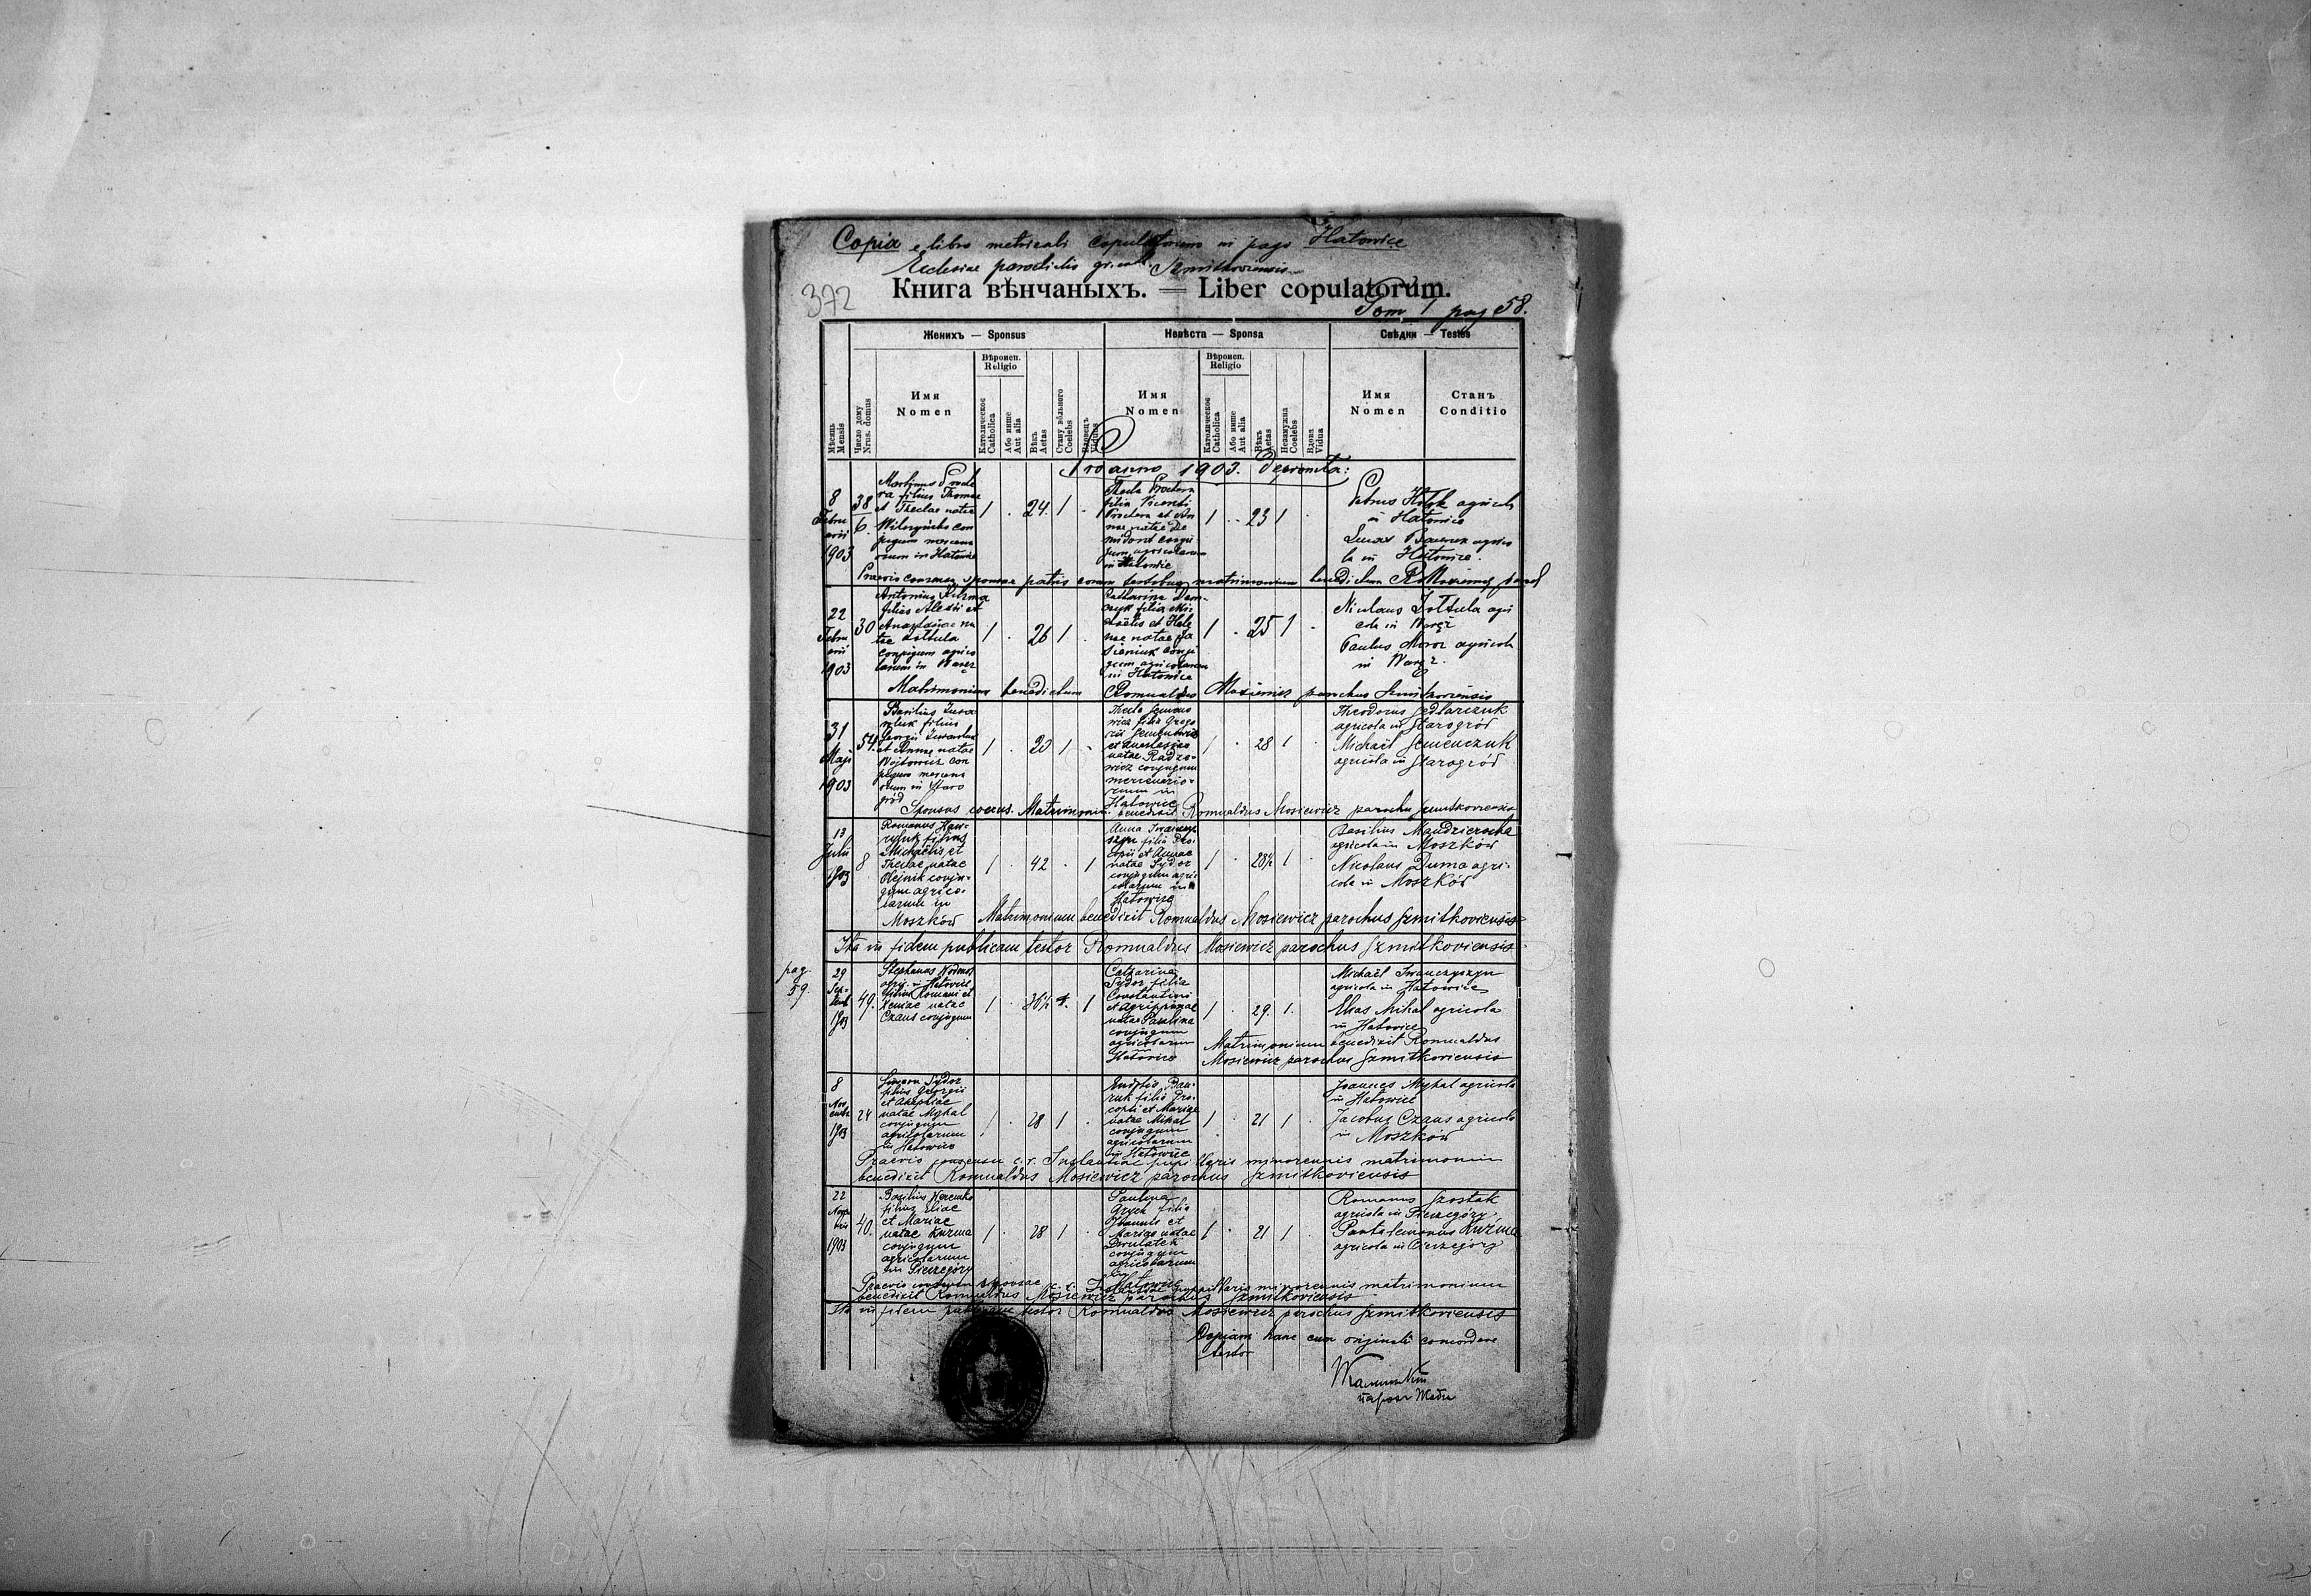 Copia e libro metricali Copulatorum in pago Hatowice
Ecclesiae parochialis gr. cath. Szmitkoviensis
372
Книга вѣнчаныхъ. — Liber copulatorum.
Tom 1 pag 58.
Женихъ — Sponsus
Невѣста — Sponsa
Свѣдки — Testes
Мѣсяць
Mensis
Число дому
Nrus. domus
Имя
Nomen
Вѣроисп.
Religio
Католическое
Catholica
Або инше
Aut alia
Вѣкъ
Aetas
Стану вôльного
Coelebs
Вдовець
Viduus
Имя
Nomen
Вѣроисп.
Religio
Католическое
Catholica
Або инше
Aut alia
Вѣкъ
Aetas
Незамужна
Coelebs
Вдова
Vidua
Имя
Nomen
Станъ
Conditio
Pro anno 1903. depromta:
8
Febru
arii
1903
38
6
Martinus
ra filius Thomae
et Theclae natae
con
jugum mercena
riorum in Hatowice
1 . 24. 1 .
Thecla
filia Vicentii
et An
nae natae De
midont conju
gum agricolarum
in Hatowice
1 . . 23 1 .
Petrus agricola
in Hatowice
Lucas agrico
la in Hatowice.
Praevio consensu sponsae patris coram testibus matrimonium benedixit
22
Febru
arii
1903
30
Antonius Kuzma
filius Alexii et
Anastasiae na
tae Zottula
conjugum agrico
larum in Waręż
1 . 26 1 .
Catharina Dem-
filia Mi
chaëlis et Hele
nae natae Ja
sieniuk conju
gum agricolarum
in Hatowice
1 . 25 1 .
Nicolaus Zottula agri
cola in Waręż
Paulus Moroz agricola
in Waręż.
Matrimonium benedixit Romualdus Mosiewicz parochus Szmitkoviensis
31
Maji
1903
54.
Basilius
filius
Georgii
et Annae natae
Wójtowicz con
jugum mercena
riorum in Staro
gród
1 . 20 1 .
Thecla Semeno
wicz filia Grego
rii
et Anastasiae
natae Radzo-
wicz conjugum
mercenario-
rum in
Hatowice
1 . 28 1 .
Theodorus Sedlarczuk
agricola in Starogród
Michaël Semenczuk
agricola in Starogród
Sponsus Matrimonium benedixit Romualdus Mosiewicz parochus Szmitkoviensis
13
Julii
1903
8
Romanus Haw-
ryluk filius
Michaëlis et
Theclae natae
Olejnik conju-
gum agrico-
larum in
Moszków
1 . 42 . 1
Anna Iwanczy
szyn filia Pro-
copii et Annae
natae Sydor
conjugum agri-
colarum in
Hatowice
1 . 28½ 1 .
Basilius Mandziercha
agricola in Moszków
Nicolaus Duma agri-
cola in Moszków
Matrimonium benedixit Romualdus Mosiewicz parochus Szmitkoviensis
Ita in fidem publicam testor Romualdus Mosiewicz parochus Szmitkoviensis
pag.
59.
29
Sep-
temb
1903
49.
Stephanus
agri. in Hatowice
filius Romani et
Xeniae natae
Czaus conjugum
1 . 36½ . 1
Catharina
Sydor filia
Constantini
et Agrippinae
natae Paulina
conjugum
agricolarum
in Hatowice
1 . 29. 1.
Michaël Iwanczyszyn
agricola in Hatowice
Elias Mihal agricola
in Hatowice
Matrimonium benedixit Romualdus
Mosiewicz parochus Szmitkoviensis
8
Nov
embr
1903
24
Simeon Sydor
filius Georgii
et
natae Myhal
conjugum
agricolarum
in Hatowice
1 . 28 1 .
filia Pro-
copii et Mariae
natae Mihal
conjugum
agricolarum
in Hatowice
1 . 21 1 .
Joannes Myhal agricola
in Hatowice
Jacobus Czaus agricola
in Moszków
Praevio consensu c. r. Instantiae pupillaris minorennis matrimonium
benedixit Romualdus Mosiewicz parochus Szmitkoviensis
22
Novem
bris
1903
40.
Basilius Neremko
filius Eliae
et Mariae
natae Kuzma
conjugum
agricolarum
in Pieczegóry
1 . 28 1 .
Paulina
Gryck filia
Joannis et
Mariae natae
conjugum
agricolarum
in Hatowice
1 . 21 1 .
Romanus Szostak
agricola in Pieczegóry
Pantaleimonus Kuźma
agricola in Pieczegóry
Praevio consensu sponsae c. r. Instantiae pupillaris minorennis matrimonium
benedixit Romualdus Mosiewicz parochus Szmitkoviensis
Ita in fidem publicam testor Romualdus Mosiewicz parochus Szmitkoviensis
Copiam hanc cum originali concordare
testor